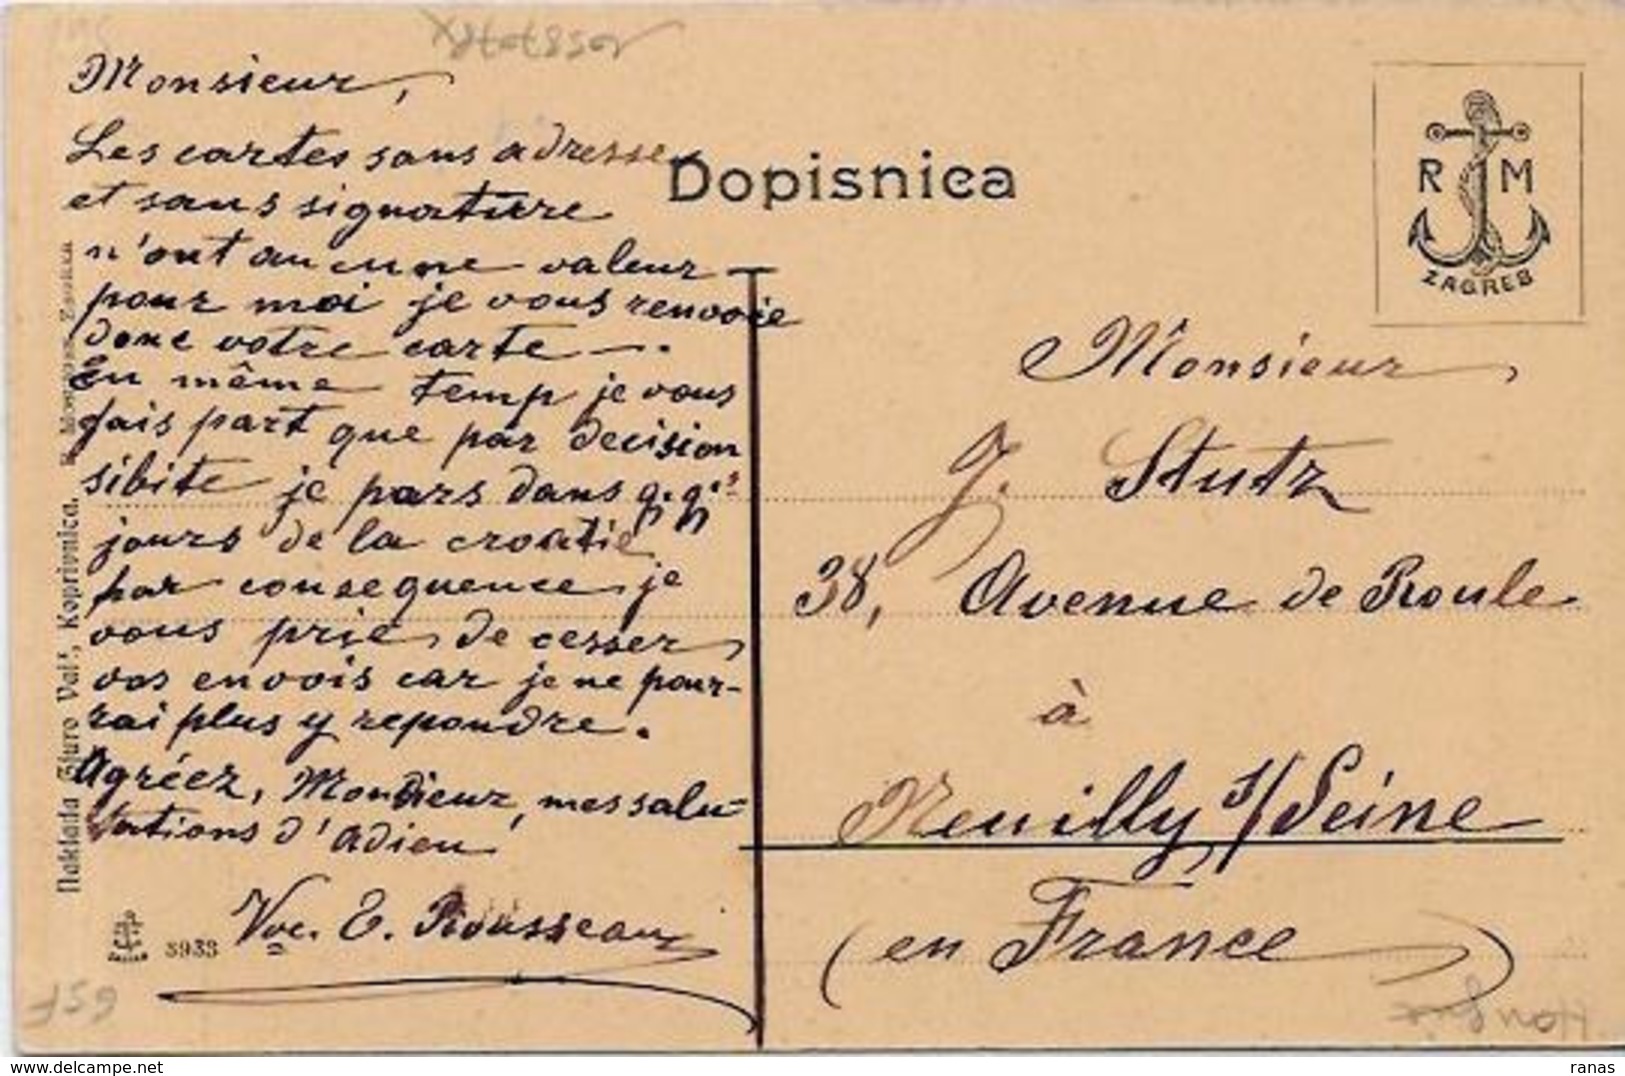 Monsieur,
Les cartes sans adresse
et sans signature
n'ont aucune valeur
pour moi je vous renvoie
donc votre carte —.
En même temp je vous
fais part que par decision
sibite je pars dans q.q.s
jours de la croatie
par consequence je
vous prie de cesser
vos envois car je ne pour-
rai plus y repondre.
Agréez, Monsieur, mes salu-
tations d'adieu
Vve. E. Rousseau
Dopisnica
R M
ZAGREB
Monsieur
J. Stutz
38, Avenue de Roule
à
Neuilly s/Seine
(en France)
Naklada Gjuro Val, Koprivnica.
3933
159
delcampe.net
ranas